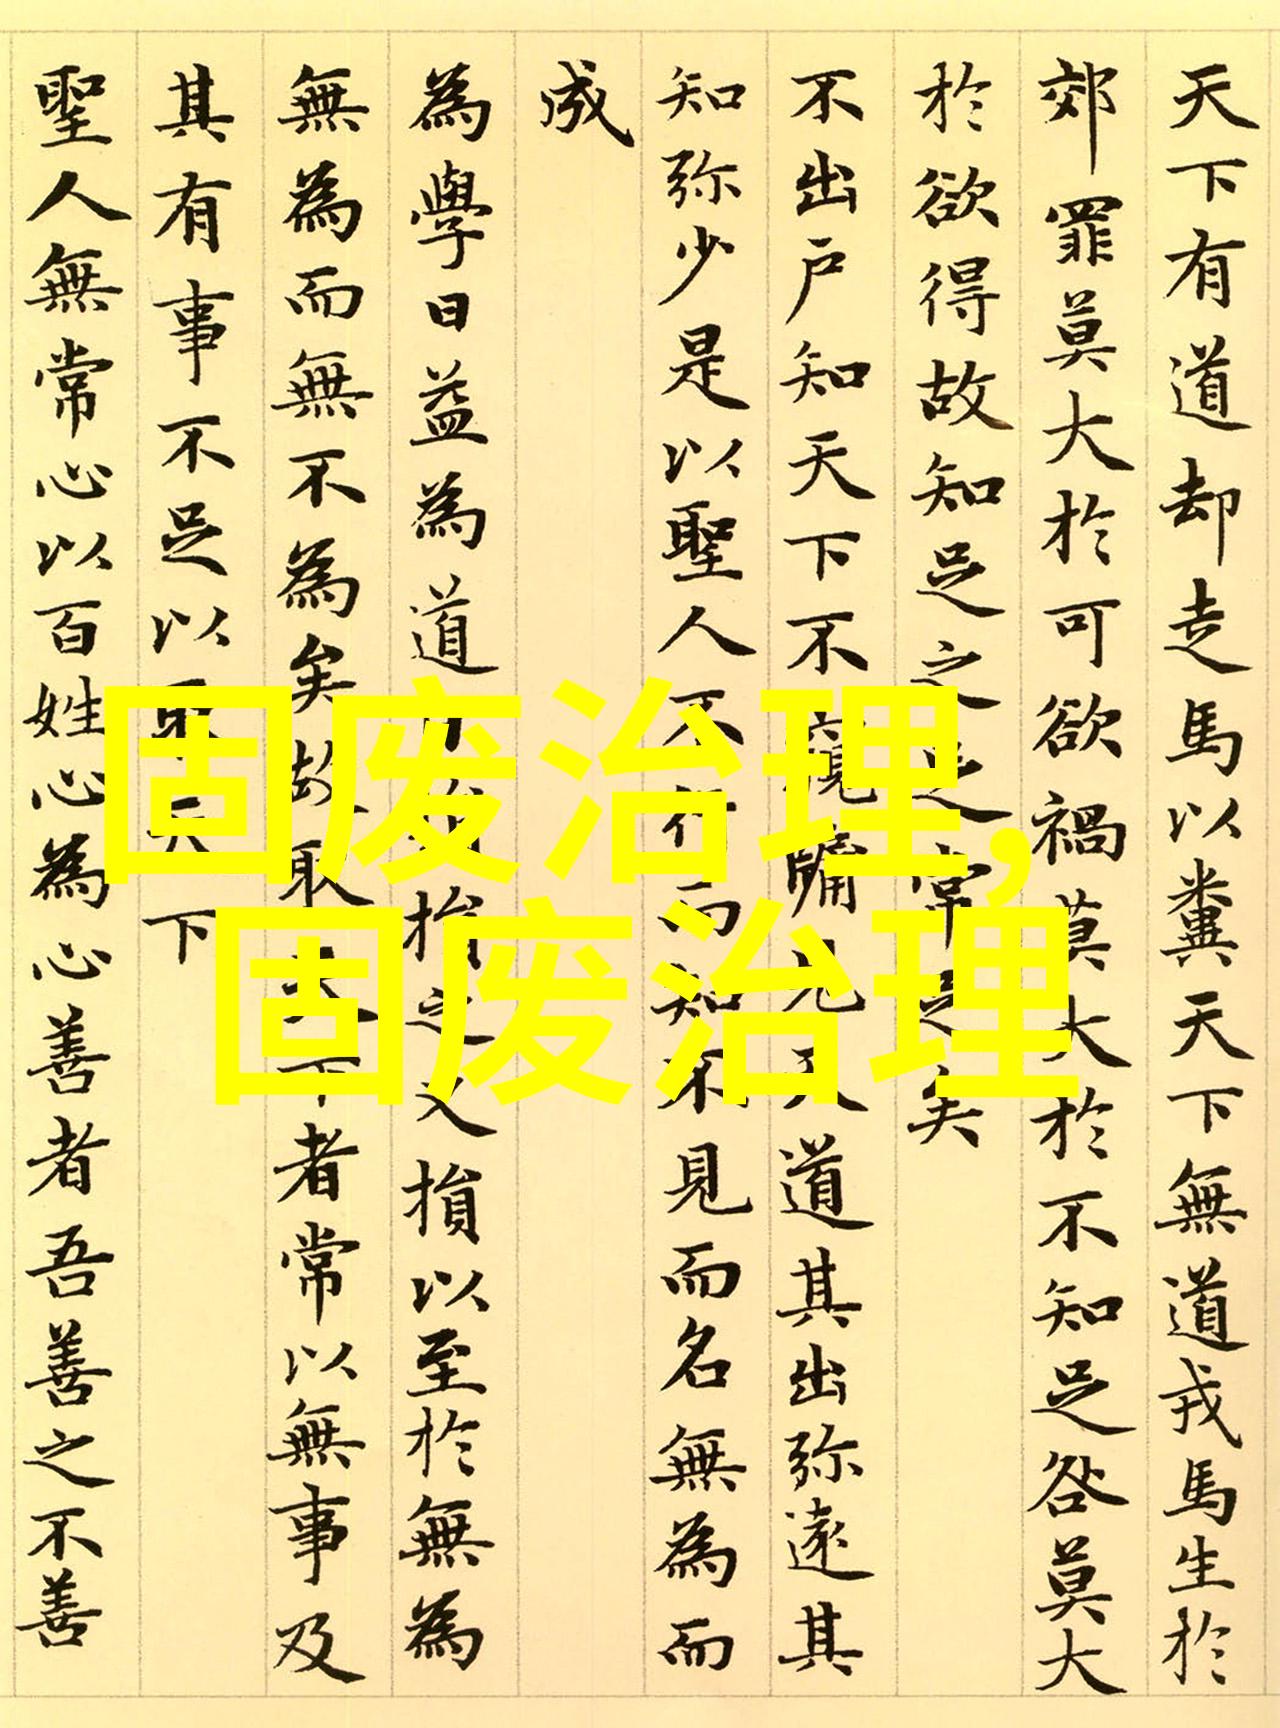 天下有道却走馬以糞天下無道戎馬生於
郊罪莫大於可欲禍莫大於不知足咎莫大
於欲得故知足之足常足矣
不出户知天下不窺牖見天道其出弥遠其
知弥少是以聖人不行而知不見而名無為而
成
為學日益為道日損損之又損以至於無為
無為而無不為矣故取天下者常以無事及
其有事不足以取天下
聖人無常心以百姓心為心善者吾善之不善
固废治理,
固废治理